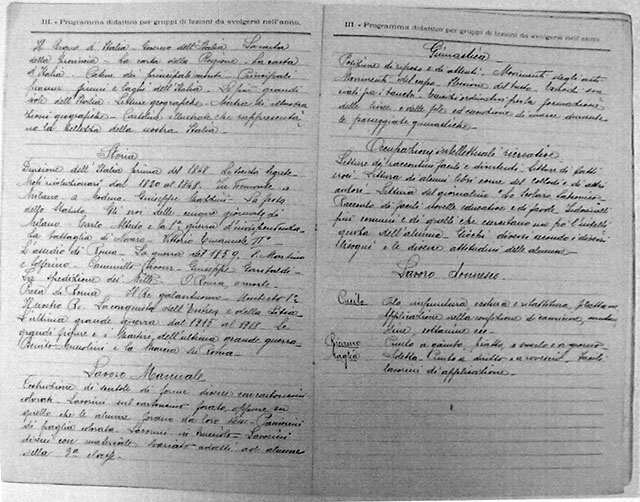 III. - Programma didattico per gruppi di lezioni da svolgersi nell'anno.
Il Regno d'Italia - Governo dell'Italia - La carta
della Provincia - La carta della Regione - La carta
d'Italia - Catene dei principali monti - Principali
fiumi e laghi dell'Italia - Le più grandi
isole dell'Italia - Letture geografiche - Mostra di illustra
zioni geografiche - Cartoline illustrate che rappresenta
no la bellezza della nostra Italia -
Storia
Divisione dell'Italia prima del 1848. Le società segrete -
Moti rivoluzionari dal 1820 al 1848. in Piemonte a
Milano a Modena - Giuseppe Mazzini - La festa
dello Statuto - Gli eroi delle cinque giornate di
Milano - Carlo Alberto e la 1ª guerra d'indipendenza -
La battaglia di Novara - Vittorio Emanuele IIº
L'assedio di Roma - La guerra del 1859. S. Martino
e Solferino - Camillo Cavour - Giuseppe Garibaldi -
La spedizione dei Mille - O Roma o morte -
Presa di Roma - Il Re galantuomo - Umberto 1º
Nostro Re - La conquista dell'Eritrea e della Libia -
L'ultima grande guerra dal 1915 al 1918. Le
grandi figure e i Martiri dell'ultima grande guerra -
Benito Mussolini e la Marcia su Roma -
Lavoro Manuale
Costruzione di scatole di forme diverse con cartoncini
colorati - Lavorini sul cartoncino forato, oppure su
quello che le alunne forano da loro - Lavorini
di paglia colorata - Lavorini
diversi con materiale svariato adatti ad alunne
della 3ª classe
III. - Programma didattico per gruppi di lezioni da svolgersi nell'anno.
Ginnastica -
Posizione di riposo e di attenti - Movimenti degli arti
Movimenti del capo - Flessione del busto -
Esercizi ordinativi per la formazione
delle righe e delle file ed esecuzione di marce durante
le passeggiate ginnastiche -
Occupazioni intellettuali ricreative -
Letture di raccontini facili e divertenti - Letture di fatti
eroici - Lettura di alcuni libri come del Collodi e di altri
autori - Lettura del giornalino
Racconto di facili novelle educative e di favole - Indovinelli
più comuni e di quelli che esercitano un po' l'intelli
genza dell'alunna - Giochi diversi secondo i diversi
bisogni e le diverse attitudini delle alunne -
Lavoro donnesco -
Cucito - Alla impuntura costura e ribattitura,
Applicazione nella confezione di camicine, mutan
dine, sottanine ecc -
Ricamo - Punto a giorno -
Maglia - Punto a diritto e a rovescio. Facili
lavorini di applicazione. -